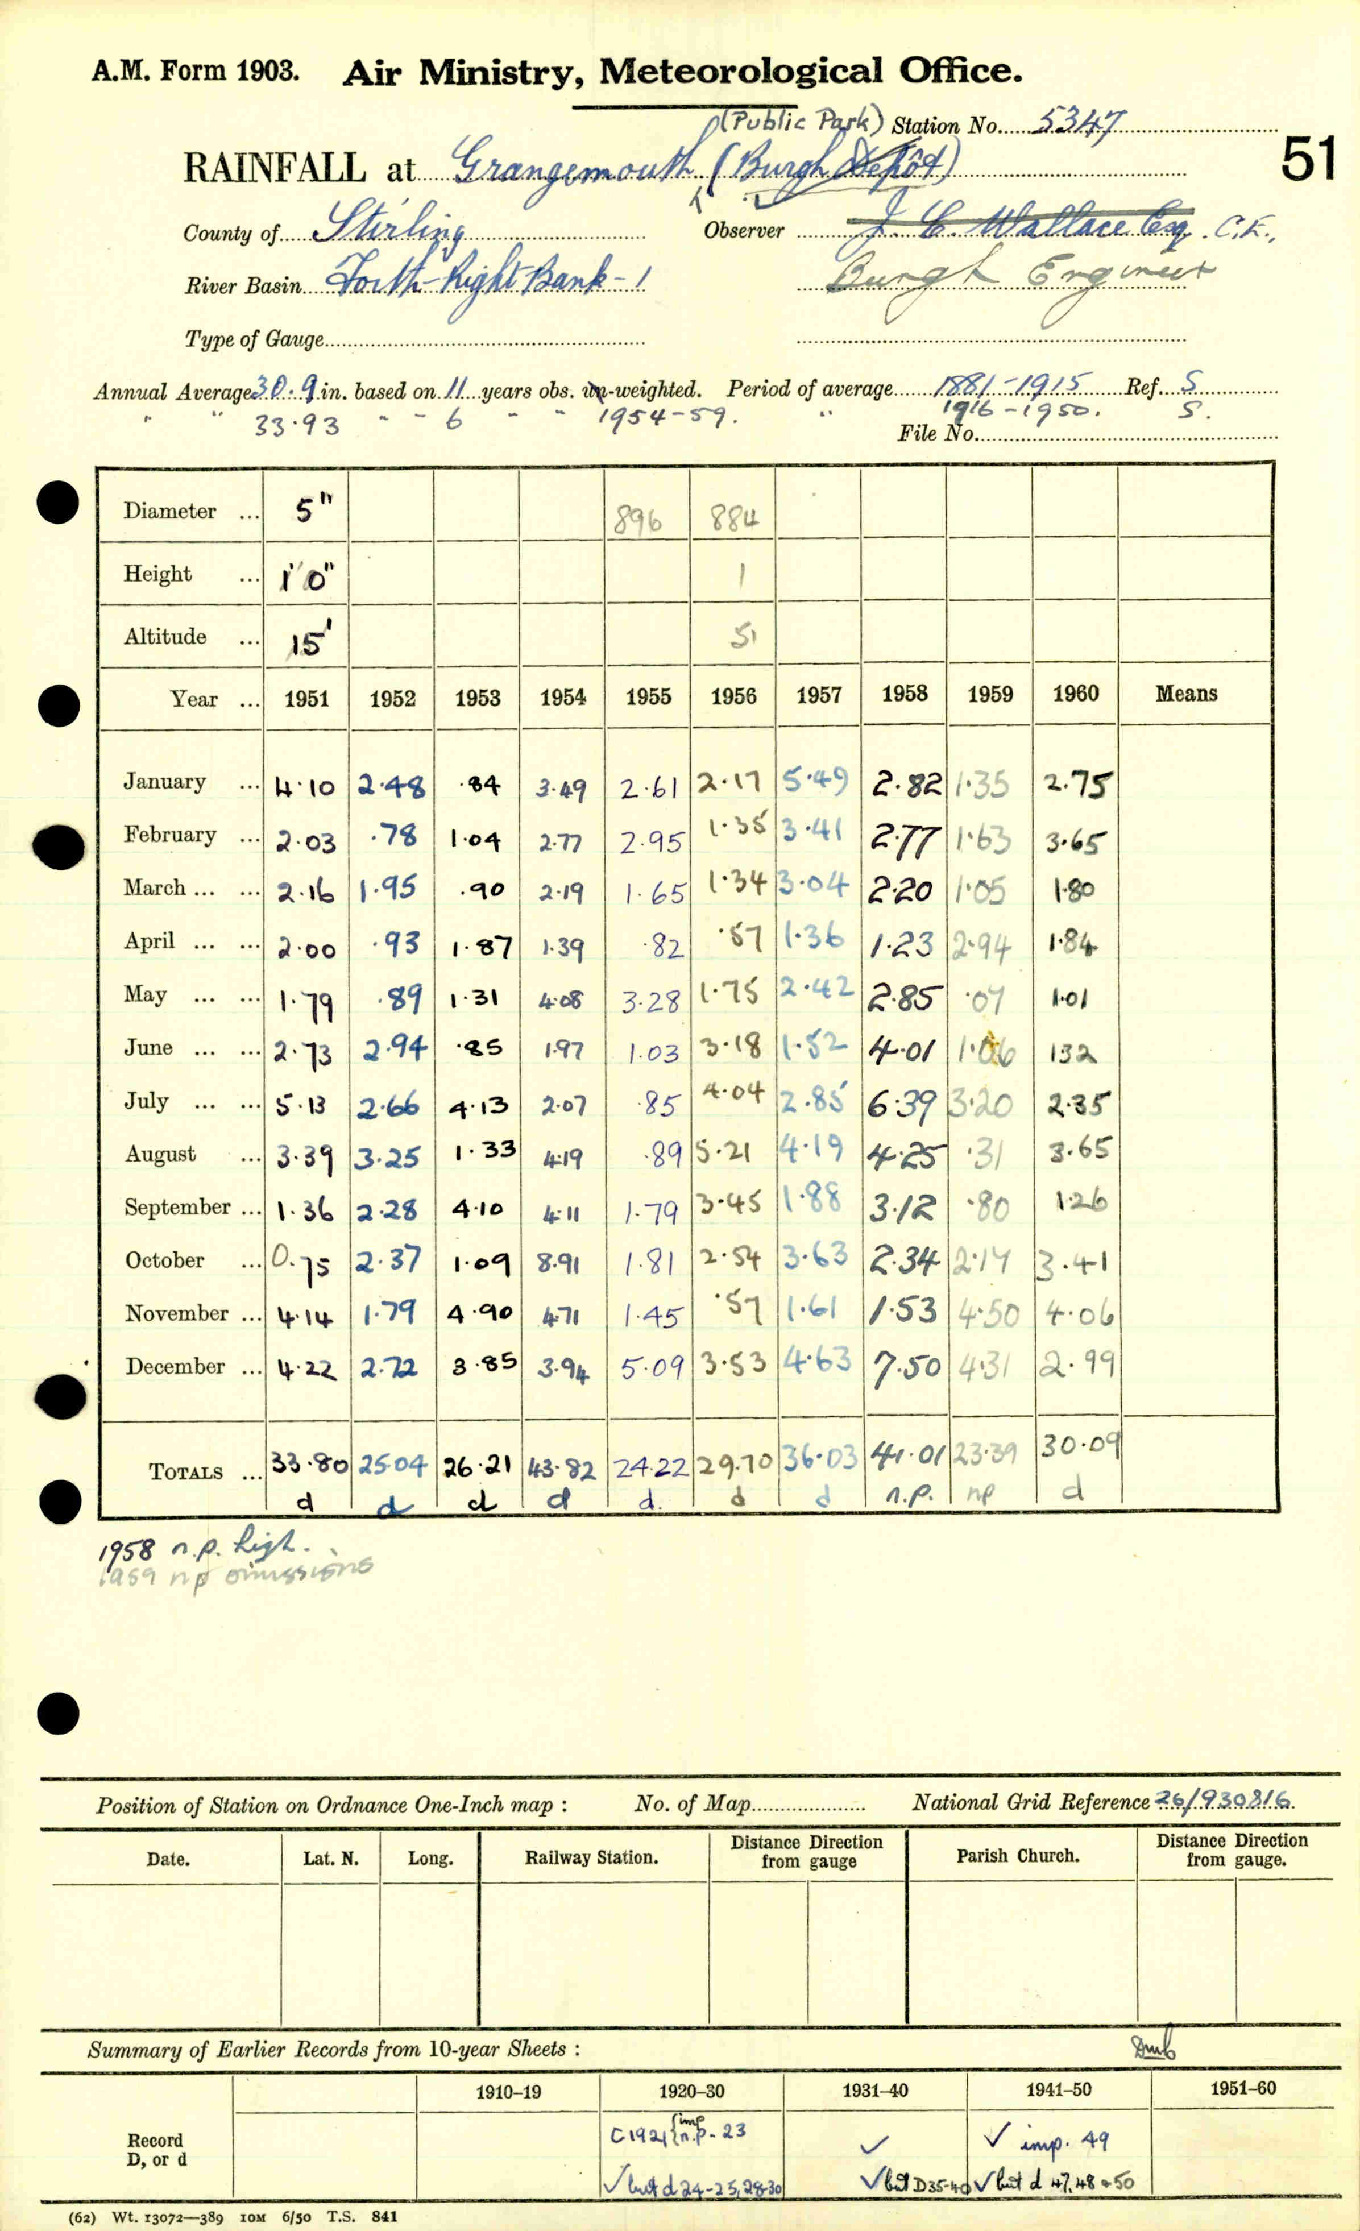 A.M. Form 1903. Air Ministry, Meteorological Office.
(Public Park) Station No. 5347
51
RAINFALL at Grangemouth (Burgh Depôt)
County of Stirling Observer J. C. Wallace Esq. C.E.,
River Basin Forth-Right Bank-1 Burgh Engineer
Type of Gauge
Annual Average 30.9 in. based on 11 years obs. un-weighted. Period of average 1881-1915 Ref. S
" " 33.93 " - 6 - - 1954-59. " 1916-1950. S.
File No.
Diameter ... 5" 896 884
Height ... 1' 0" 1
Altitude ... 15' 51
Year ... 1951 1952 1953 1954 1955 1956 1957 1958 1959 1960 Means
January ... 4.10 2.48 .84 3.49 2.61 2.17 5.49 2.82 1.35 2.75
February ... 2.03 .78 1.04 2.77 2.95 1.35 3.41 2.77 1.63 3.65
March ... ... 2.16 1.95 .90 2.19 1.65 1.34 3.04 2.20 1.05 1.80
April ... ... 2.00 .93 1.87 1.39 .82 .57 1.36 1.23 2.94 1.84
May ... ... 1.79 .89 1.31 4.08 3.28 1.75 2.42 2.85 .07 1.01
June ... ... 2.73 2.94 .85 1.97 1.03 3.18 1.52 4.01 1.06 1.32
July ... ... 5.13 2.66 4.13 2.07 .85 4.04 2.85 6.39 3.20 2.35
August ... 3.39 3.25 1.33 4.19 .89 5.21 4.19 4.25 .31 3.65
September ... 1.36 2.28 4.10 4.11 1.79 3.45 1.88 3.12 .80 1.26
October ... 0.75 2.37 1.09 8.91 1.81 2.54 3.63 2.34 2.17 3.41
November ... 4.14 1.79 4.90 4.71 1.45 .57 1.61 1.53 4.50 4.06
December ... 4.22 2.72 3.85 3.94 5.09 3.53 4.63 7.50 4.31 2.99
TOTALS ... 33.80 25.04 26.21 43.82 24.22 29.70 36.03 41.01 23.39 30.09
d d d d d. d d n.p. np d
1958 n.p. high.
1959 np omissions
Position of Station on Ordnance One-Inch map : No. of Map National Grid Reference 26/930816
Date. Lat. N. Long. Railway Station. Distance Direction from gauge Parish Church. Distance Direction from gauge.
Summary of Earlier Records from 10-year Sheets :
1910–19 1920–30 1931–40 1941–50 1951–60
Record D, or d
C1921 {imp n.p. - 23 ✓ ✓ imp. 49
✓ but d 24-25, 28-30 ✓ but D35-40 ✓ but d 47, 48 + 50
(62) Wt. 13072—389 10M 6/50 T.S. 841